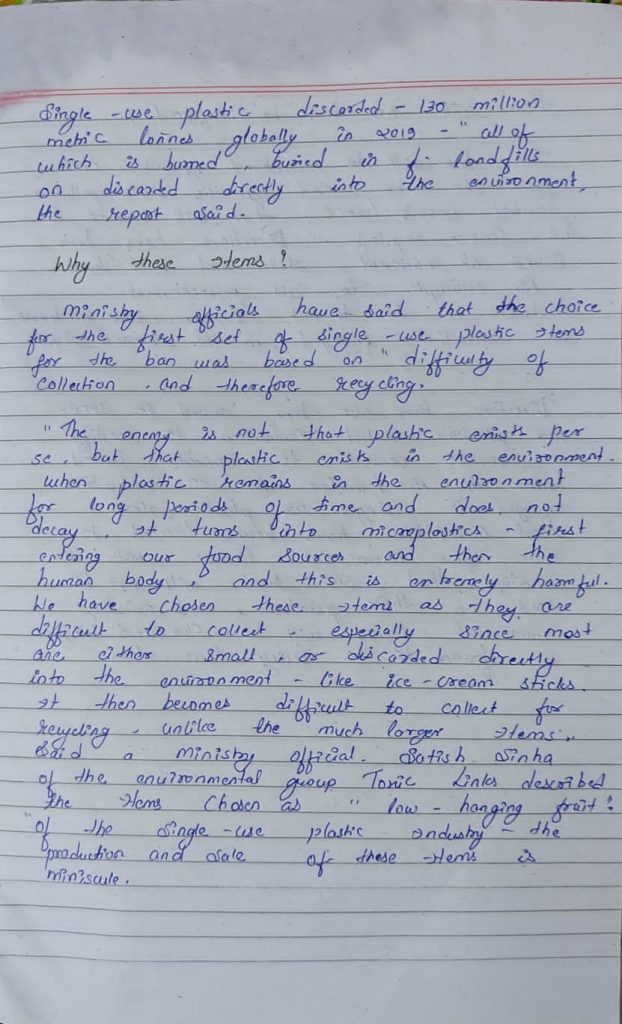 Single - use plastic discarded - 130 million
metric tonnes globally in 2019 - " all of
which is burned, buried in landfills
or discarded directly into the environment,
the report said.
Why these items?
ministry officials have said that the choice
for the first set of single - use plastic items
for the ban was based on " difficulty of
collection, and therefore recycling.
" The enemy is not that plastic exists per
se, but that plastic exists in the environment.
when plastic remains in the environment
for long periods of time and does not
decay, it turns into microplastics - first
entering our food sources and then the
human body, and this is extremely harmful.
We have chosen these items as they are
difficult to collect, especially since most
are either small, or discarded directly
into the environment - like ice - cream sticks.
it then becomes difficult to collect for
recycling, unlike the much larger items,,
said a ministry official. Satish Sinha
of the environmental group Toxic Links described
the items chosen as " low - hanging fruit!
" of the single - use plastic industry - the
production and sale of these items is
miniscule.